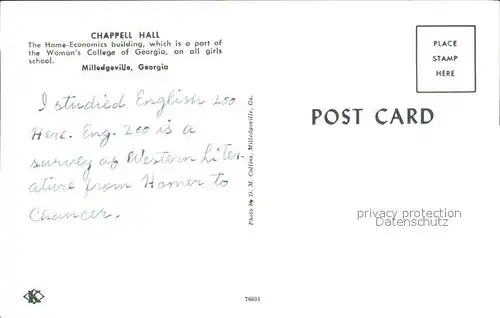 CHAPPELL HALL
The Home-Economics building, which is a part of
the Woman's College of Georgia, an all girls
school.
Milledgeville, Georgia
I studied English 200
Here. Eng. 200 is a
survey of Western Liter-
ature from Homer to
Chaucer.
Photo by D. M. Collins, Milledgeville, Ga.
POST CARD
PLACE
STAMP
HERE
privacy protection
Datenschutz
K
76601